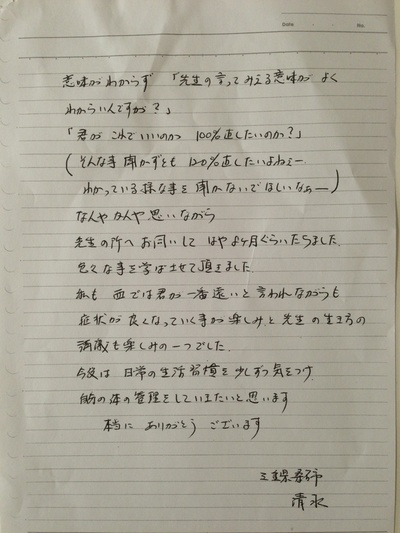 Date No.
意味がわからず 「先生の言ってみえる意味が よく
わからいんですが?」
「君が これでいいのか 100%直したいのか?」
(そんな事 聞かずとも 120%直したいよねェー
わかっている様な事を 聞かないでほしいなぁー)
なんや かんや 思いながら
先生の所へ お伺いして はや ヶ月ぐらいたちました。
色々な事を学ばせて頂きました。
私も 血では君が一番遠いと 言われながらも
症状が 良くなっていく事が楽しみと 先生の生き方の
も楽しみの一つでした。
今後は 日常の生活習慣を少しずつ気をつけ
自分の体の管理をしていきたいと思います
本当に ありがとう ございます
三重県桑名市
清水